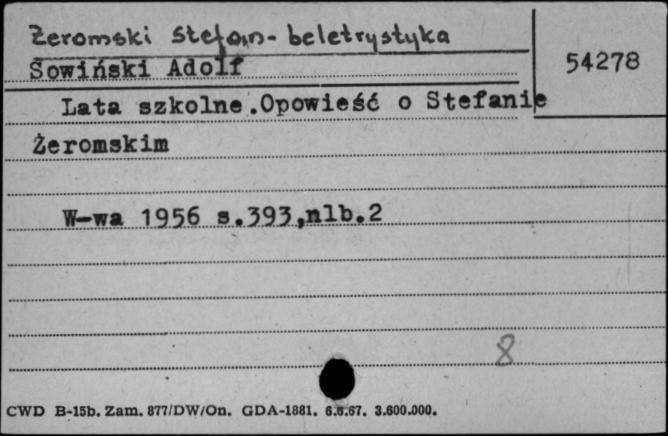 Żeromski Stefan - beletrystyka
Sowiński Adolf
54278
Lata szkolne.Opowieść o Stefanie
Żeromskim
W-wa 1956 s.393,nlb.2
8
CWD B-15b. Zam. 877/DW/On. GDA-1881. 6.6.67. 3.600.000.